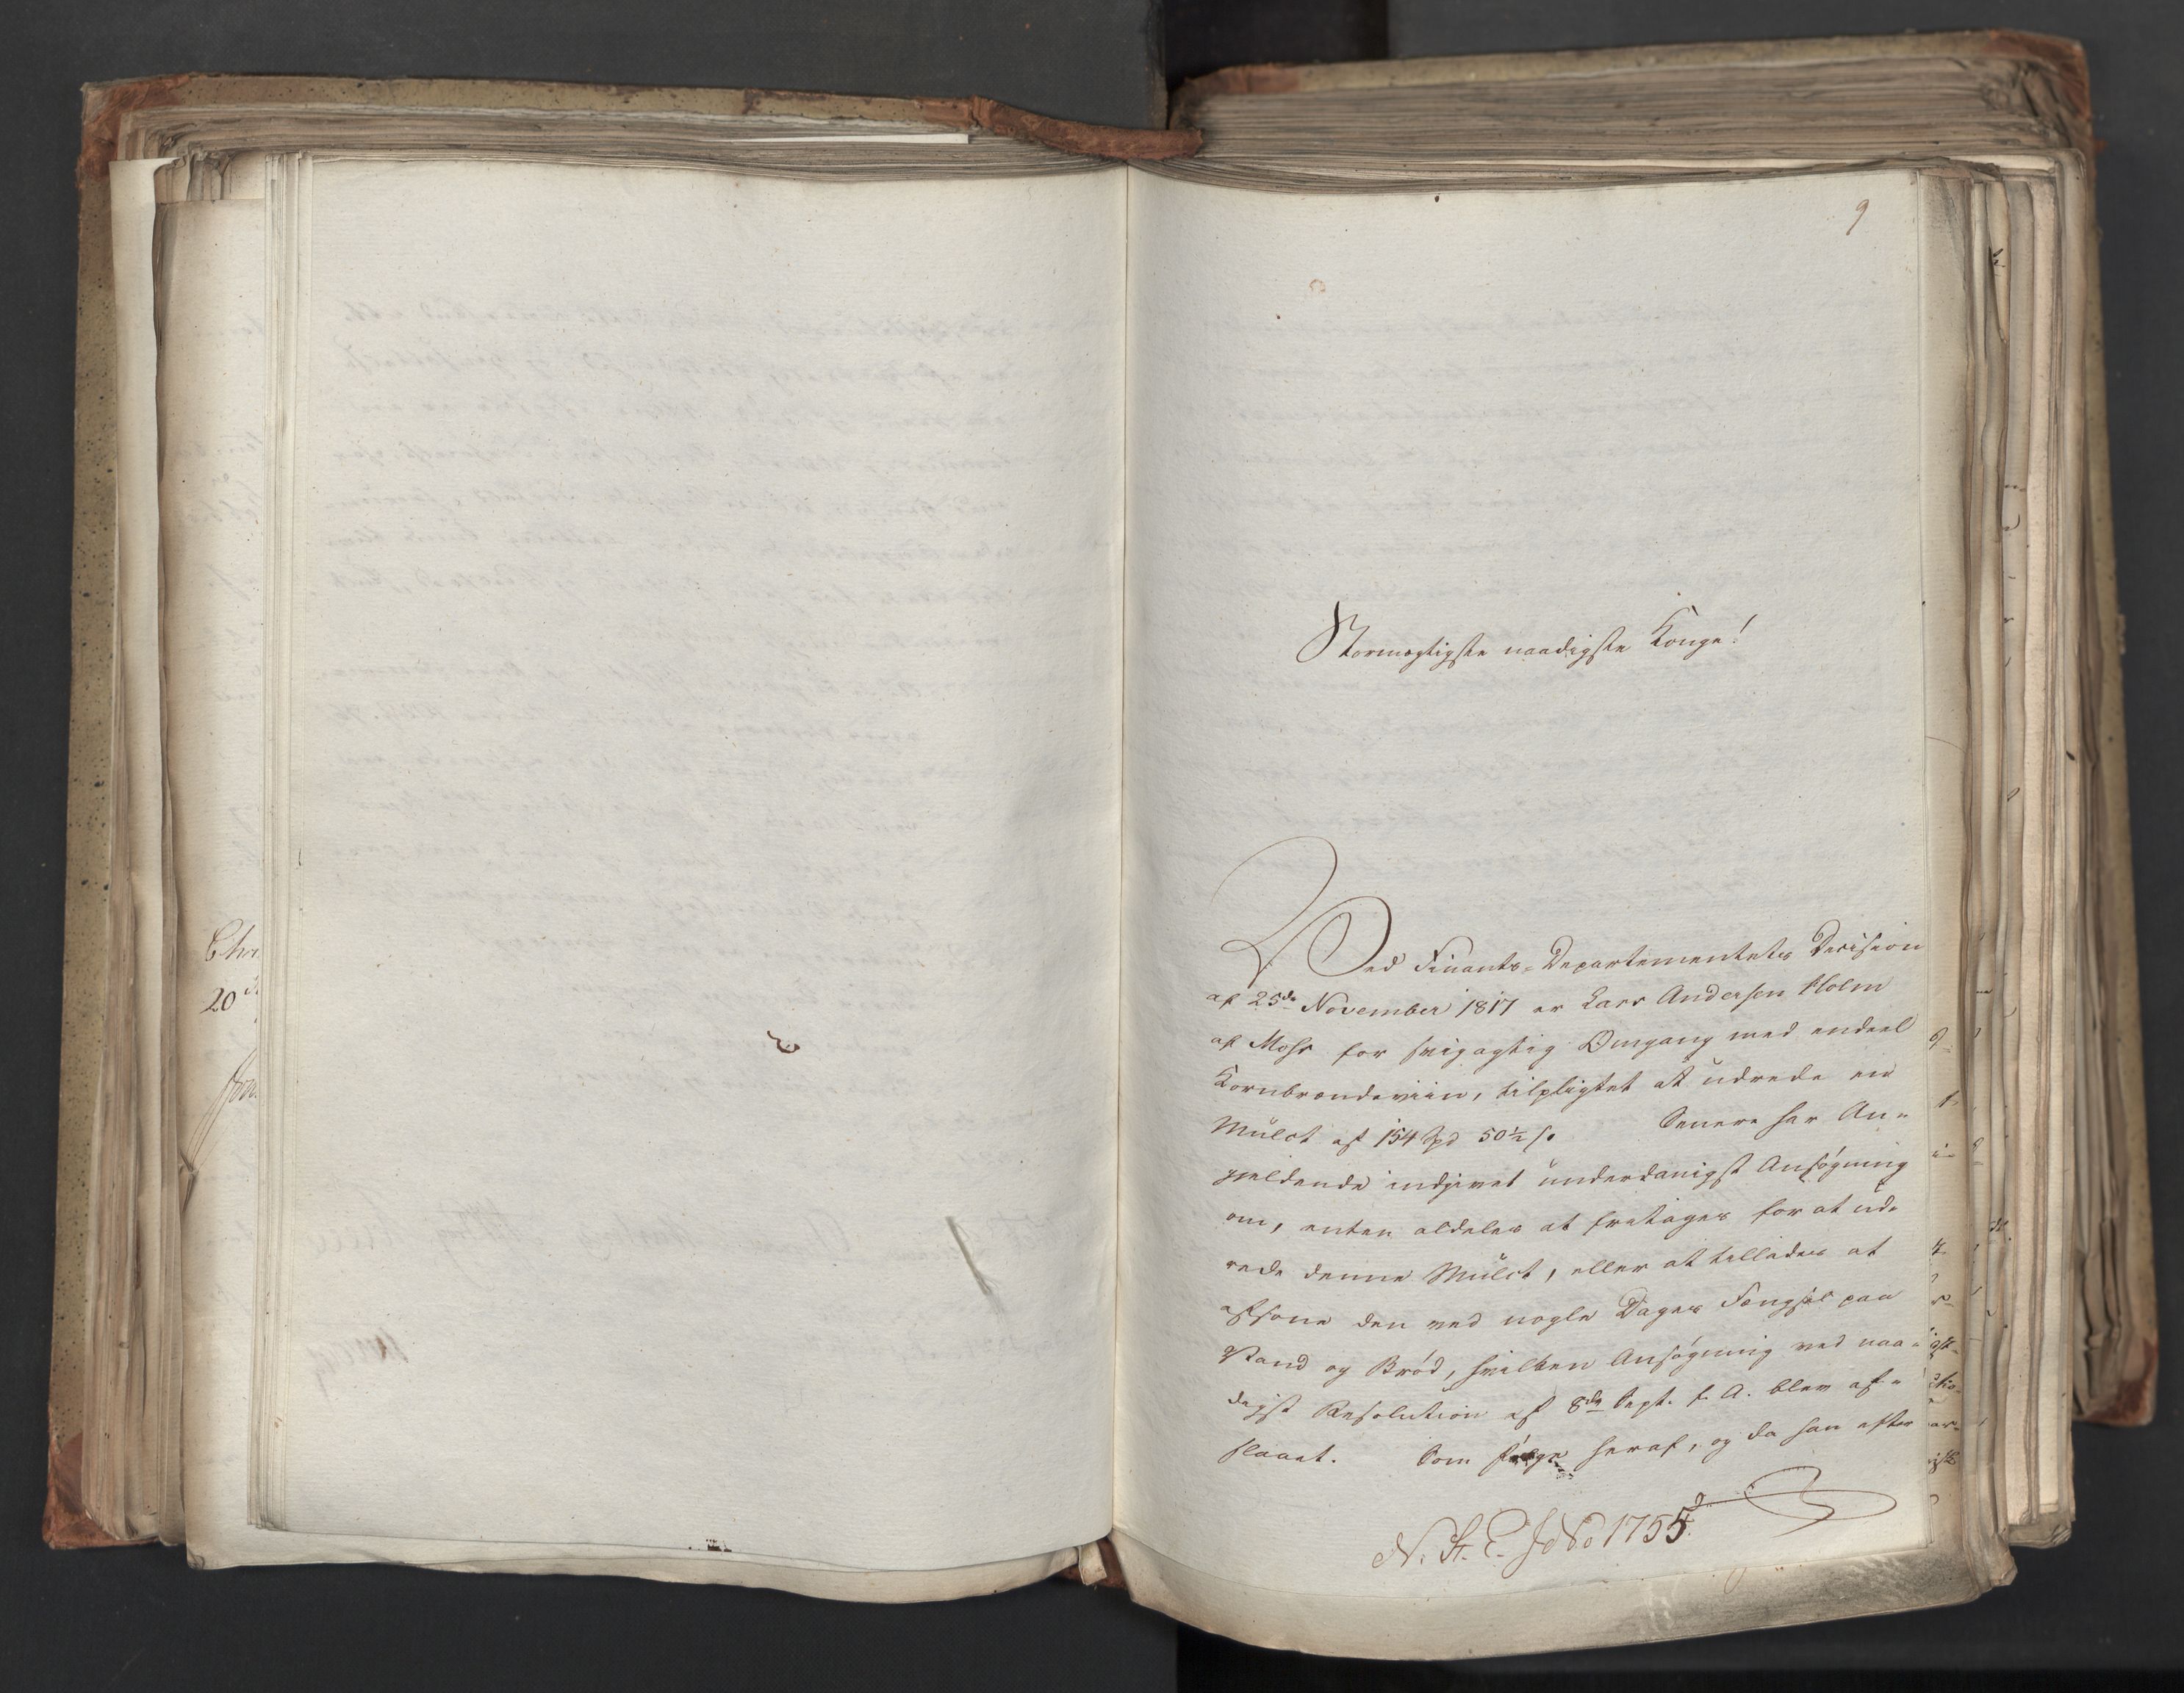 9
Stormægtigste naadigste Konge!
Ved Finants-Departementets Decision
af 25de November 1817 er Lars Andersen Holm
af Moss for svigagtig Omgang med endeel
Kornbrændeviin, tilpligtet at udrede en
Mulct af 154 Spd 50½ s.  Senere har An-
gjeldende indgivet underdanigst Ansøgning
om, enten aldeles at fritages for at ud-
rede denne Mulct, eller at tillades at
afsone den ved nogle Dages Fængsel paa
Vand og Brød, hvilken Ansøgning ved naa-
digst Resolution af 8de Sept. f. A. blev af-
slaaet.  Som Følge heraf, og da han efter
N. St. E. J No 1755
Chr
20